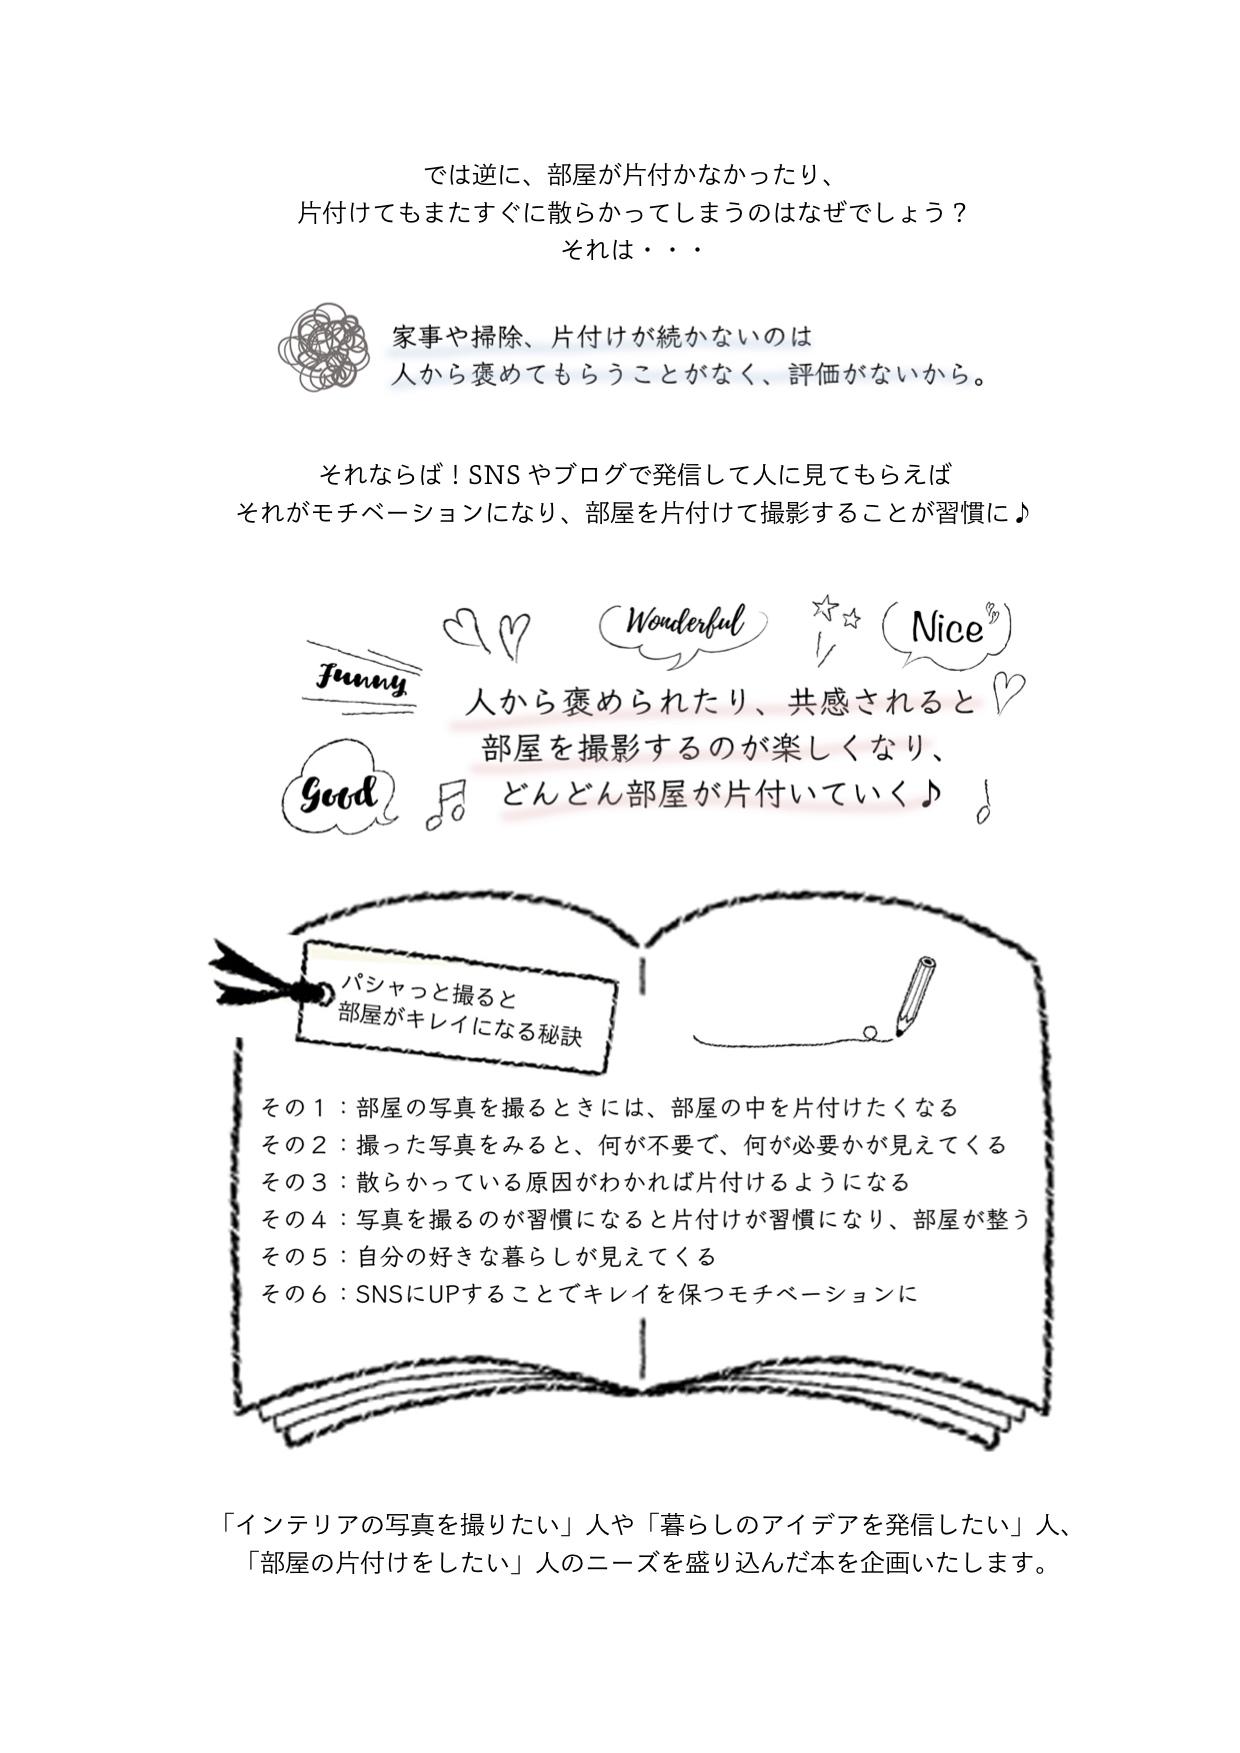 では逆に、部屋が片付かなかったり、
片付けてもまたすぐに散らかってしまうのはなぜでしょう？
それは・・・
家事や掃除、片付けが続かないのは
人から褒めてもらうことがなく、評価がないから。
それならば！SNS やブログで発信して人に見てもらえば
それがモチベーションになり、部屋を片付けて撮影することが習慣に♪
Wonderful
Nice
Funny
人から褒められたり、共感されると
部屋を撮影するのが楽しくなり、
Good
どんどん部屋が片付いていく♪
パシャっと撮ると
部屋がキレイになる秘訣
その１：部屋の写真を撮るときには、部屋の中を片付けたくなる
その２：撮った写真をみると、何が不要で、何が必要かが見えてくる
その３：散らかっている原因がわかれば片付けるようになる
その４：写真を撮るのが習慣になると片付けが習慣になり、部屋が整う
その５：自分の好きな暮らしが見えてくる
その６：SNSにUPすることでキレイを保つモチベーションに
「インテリアの写真を撮りたい」人や「暮らしのアイデアを発信したい」人、
「部屋の片付けをしたい」人のニーズを盛り込んだ本を企画いたします。